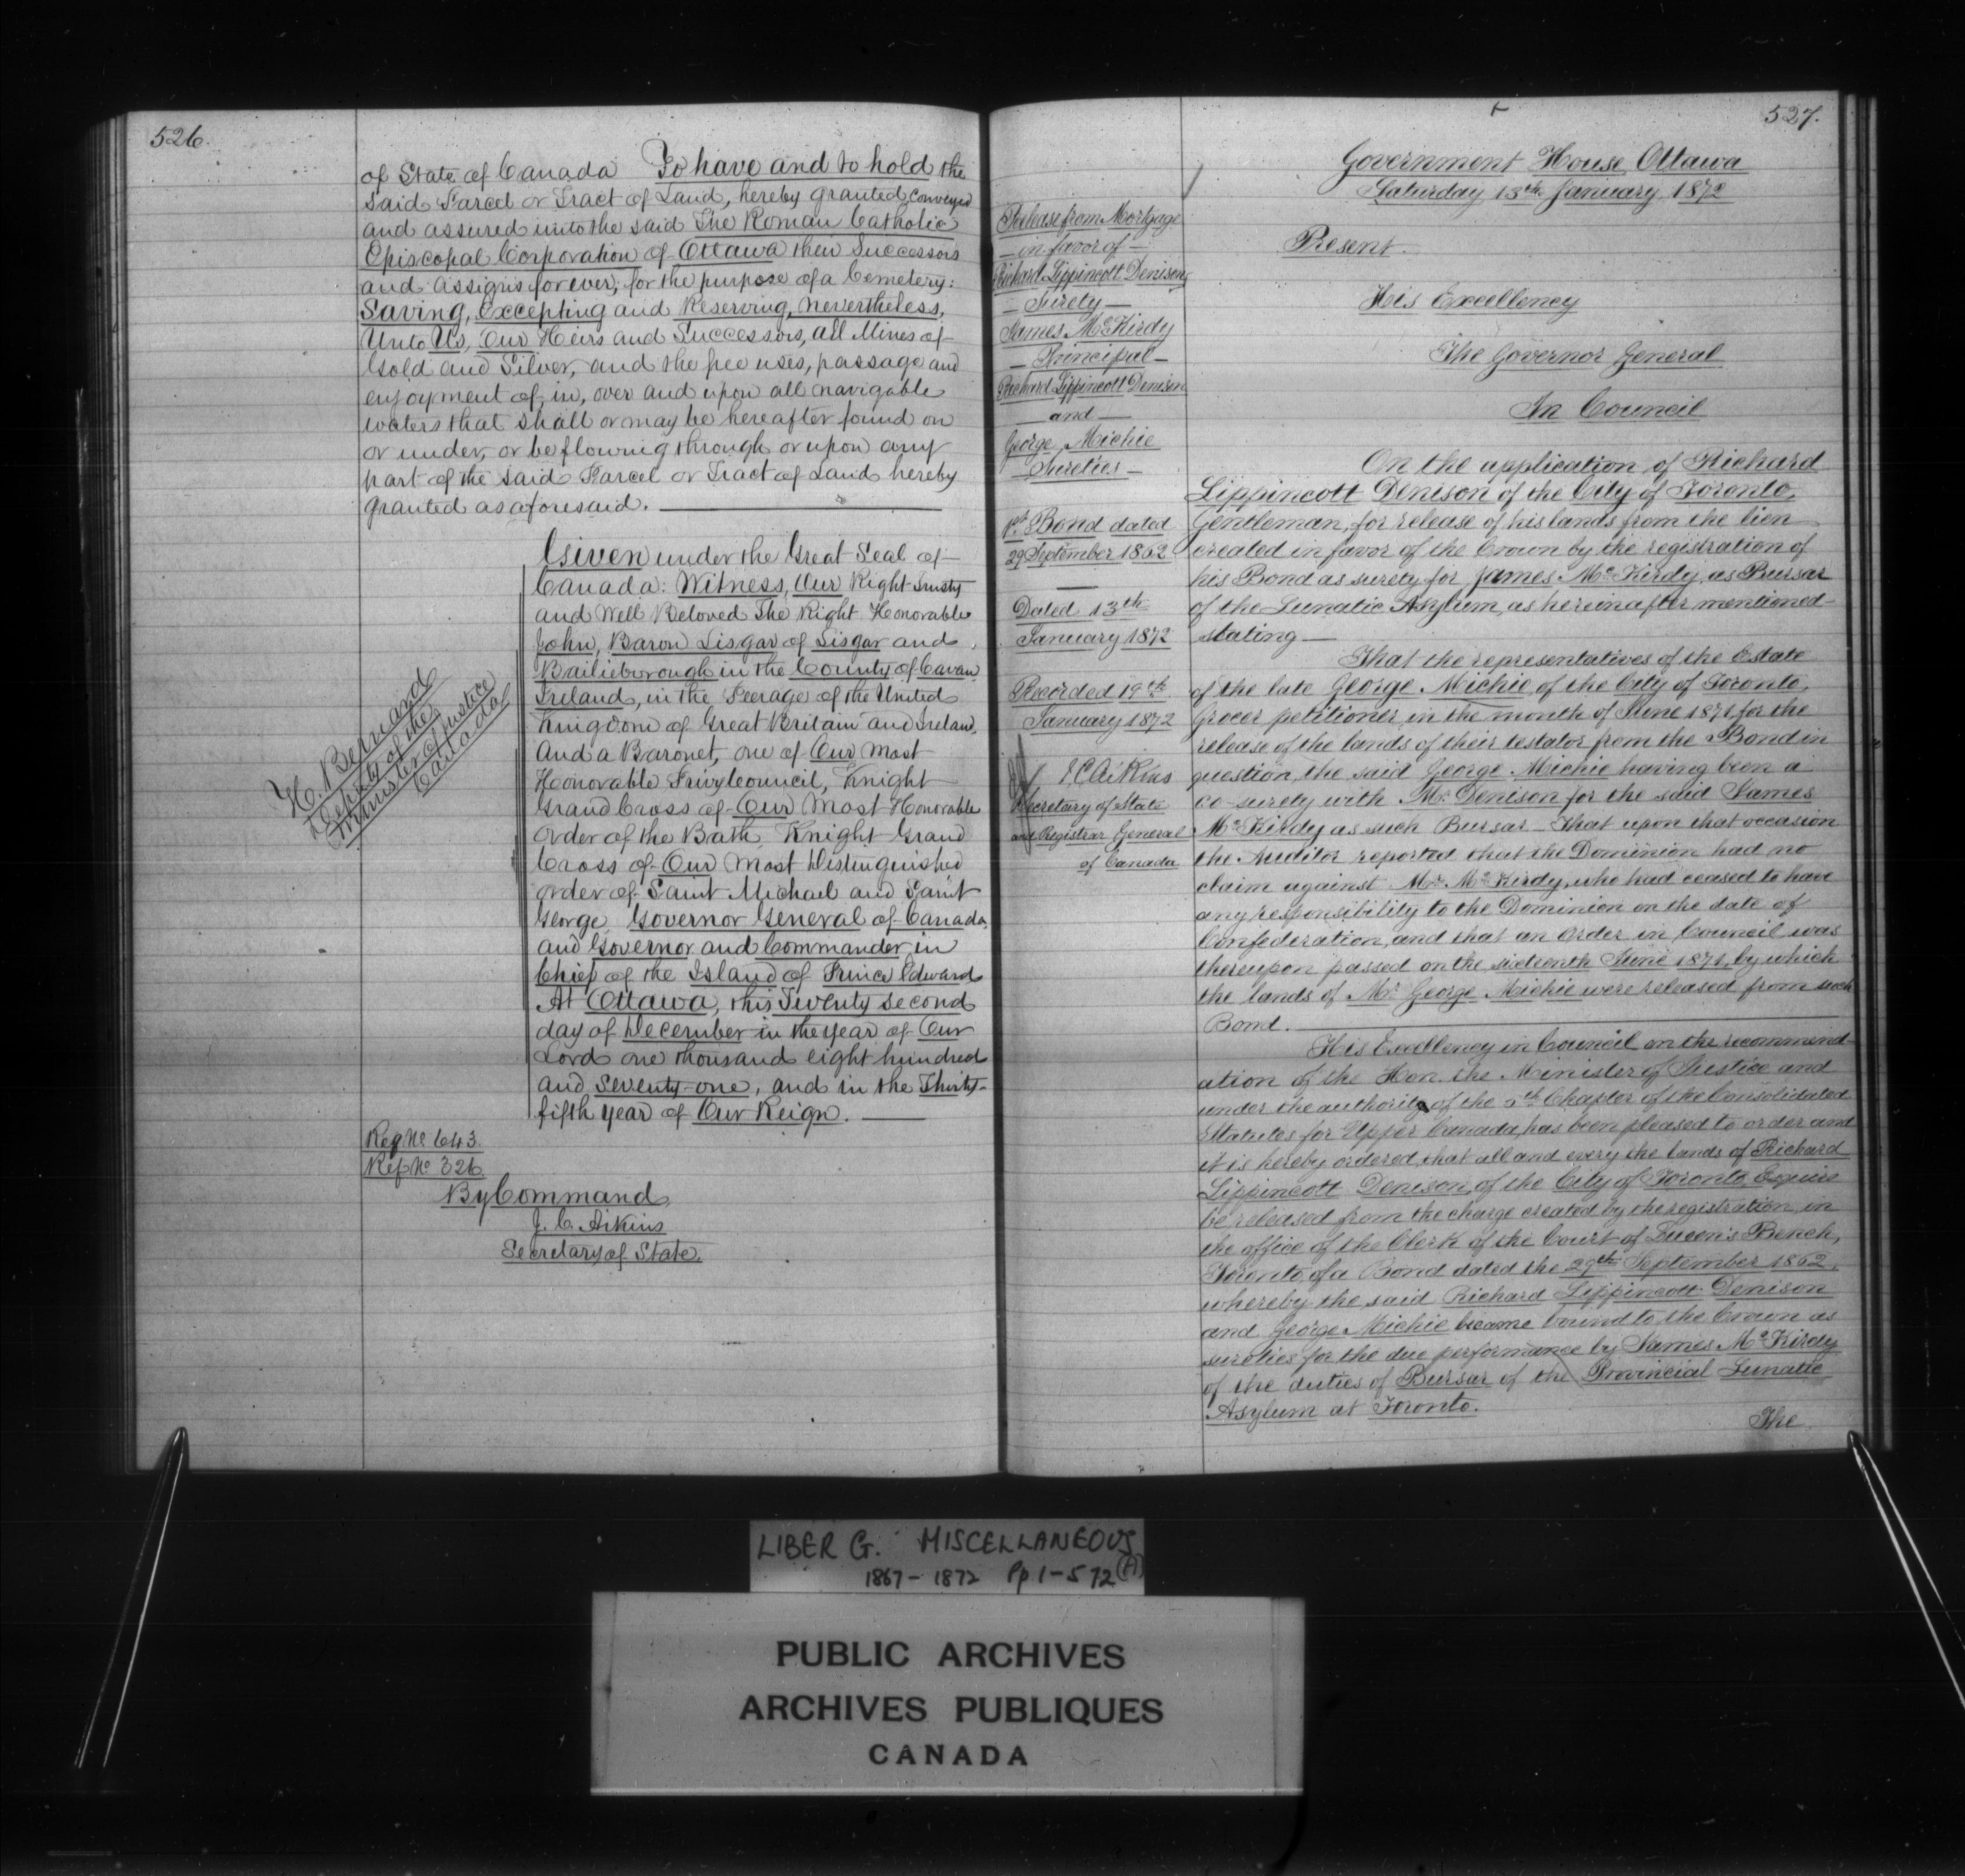 526.
of State of Canada To have and to hold the
said Parcel or Tract of Land, hereby granted conveyed
and assured unto the said The Roman Catholic
Episcopal Corporation of Ottawa their Successors
and assigns forever, for the purpose of a Cemetery:
Saving, Excepting and Reserving, nevertheless,
Unto Us, Our Heirs and Successors, all Mines of
Gold and Silver, and the free uses, passage and
enjoyment of, in, over and upon all navigable
waters that shall or may be hereafter found on
or under, or be flowing through or upon any
part of the said Parcel or Tract of Land hereby
granted as aforesaid.
Given under the Great Seal of
Canada: Witness, Our Right Trusty
and Well Beloved The Right Honorable
John, Baron Lisgar of Lisgar and
Bailieborough in the County of Cavan
Ireland, in the Peerage of the United
Kingdom of Great Britain and Ireland,
and a Baronet, one of Our Most
Honorable Privy Council, Knight
Grand Cross of Our Most Honorable
Order of the Bath, Knight Grand
Cross of Our Most Distinguished
Order of Saint Michael and Saint
George, Governor General of Canada,
and Governor and Commander in
Chief of the Island of Prince Edward
At Ottawa, this Twenty second
day of December in the year of Our
Lord one thousand eight hundred
and seventy-one, and in the Thirty-
fifth year of Our Reign.
H. Bernard
Deputy of the
Minister of Justice
Canada
Reg No 643.
Ref No 326
By Command,
J. C. Aikins
Secretary of State.
527.
Release from Mortgage
in favor of
Richard Lippincott Denison
Surety
James McKirdy
Principal
Richard Lippincott Denison
and
George Michie
Sureties
Bond dated
29 September 1862
Dated 13th
January 1872
Recorded 19th
January 1872
J. C. Aikins
Secretary of State
and Registrar General
of Canada
Government House, Ottawa
Saturday 13th January 1872
Present.
His Excellency
The Governor General
In Council
On the application of Richard
Lippincott Denison of the City of Toronto,
Gentleman, for release of his lands from the lien
created in favor of the Crown by the registration of
his Bond as surety for James McKirdy, as Bursar
of the Lunatic Asylum, as hereinafter mentioned
stating —
That the representatives of the Estate
of the late George Michie, of the City of Toronto,
Grocer petitioner in the month of June 1871, for the
release of the lands of their testator from the Bond in
question, the said George Michie having been a
co-surety with Mr. Denison for the said James
McKirdy as such Bursar - That upon that occasion
the Auditor reported that the Dominion had no
claim against Mr. McKirdy, who had ceased to have
any responsibility to the Dominion on the date of
Confederation, and that an Order in Council was
thereupon passed on the sixteenth June 1871, by which
the lands of Mr. George Michie were released from such
Bond.
His Excellency in Council on the recommend-
ation of the Hon. the Minister of Justice and
under the authority of the 5th Chapter of the Consolidated
Statutes for Upper Canada, has been pleased to order and
it is hereby ordered, that all and every the lands of Richard
Lippincott Denison, of the City of Toronto Esquire
be released from the charge created by the registration, in
the office of the Clerk of the Court of Queen's Bench,
Toronto, of a Bond dated the 29th September 1862,
whereby the said Richard Lippincott Denison
and George Michie became bound to the Crown as
sureties for the due performance by James McKirdy
of the duties of Bursar of the Provincial Lunatic
Asylum at Toronto.
The
LIBER G. MISCELLANEOUS
1867 - 1872 Pp 1-572 (A)
PUBLIC ARCHIVES
ARCHIVES PUBLIQUES
CANADA